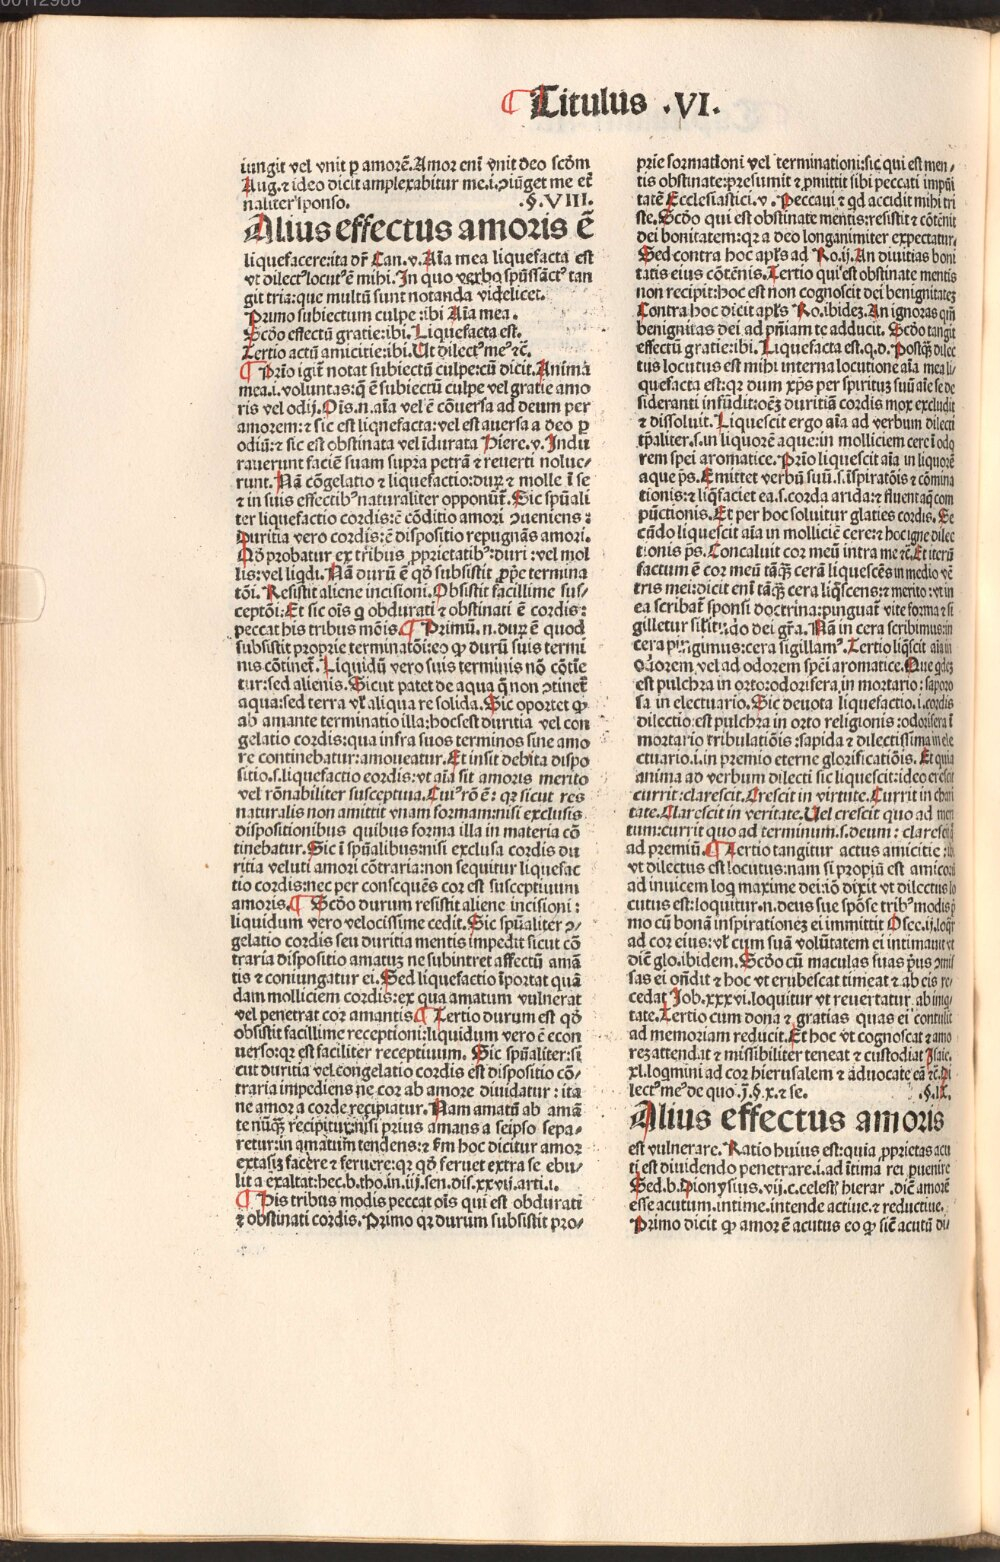 Titulus .VI.
iungit vel vnit ꝑ amorē. Amor eni vnit deo scďm
Aug. ⁊ ideo dicit amplexabitur me .i. ꝯiūget me et
naliter sponso. .§.VIII.
Alius effectus amoris ē
liquefacere: ita dr̄ Can. v. Aīa mea liquefacta est
vt dilectꝰ locutꝰ ē mihi. In quo verbo spūssāctꝰ tan
git tria: que multū sunt notanda videlicet.
Primo subiectum culpe: ibi Aīa mea.
Scďo effectū gratie: ibi. Liquefacta est.
Tertio actū amicitie: ibi. Ut dilectꝰ meꝰ ⁊c̄.
¶ Prīo igit̄ notat subiectū culpe: cū dicit. Anima
mea .i. voluntas: q̄ ē subiectū culpe vel gratie amo
ris vel odij. Oīs .n. aīa vel ē cōuersa ad deum per
amorem: ⁊ sic est liquefacta: vel est auersa a deo ꝑ
odiū: ⁊ sic est obstinata vel īdurata Hiere. v. Indu
rauerunt faciē suam supra petrā ⁊ reuerti nolue⸗
runt. Nā cōgelatio ⁊ liquefactio: duꝝ ⁊ molle ī se
⁊ in suis effectibꝰ naturaliter opponūt̄. Sic spūali
ter liquefactio cordis: ē cōditio amori ꝯueniens:
Duritia vero cordis: ē dispositio repugnās amori.
Qď probatur ex tribus ꝓprietatibꝰ: duri: vel mol
lis: vel liqdi. Nā durū ē qď subsistit ꝓp̄e termina
tōi. Resistit aliene incisioni. Obsistit facillime sus⸗
ceptōi: Et sic oīs q̇ obdurati ⁊ obstinati ē cordis:
peccat his tribus mōis. ¶ Primū .n. duꝝ ē quod
subsistit proprie terminatōi: eo ꝙ durū suis termi
nis cōtinet̄. Liquidū vero suis terminis nō cōtīe
tur: sed alienis. Sicut patet de aqua q̄ non ꝯtinet̄
aqua: sed terra vl̓ aliqua re solida. Sic oportet ꝙ
ab amante terminatio illa: hoc est duritia vel con
gelatio cordis: qua infra suos terminos sine amo
re continebatur: amoueatur. Et insit debita dispo
sitio .s. liquefactio cordis: vt aīa sit amoris merito
vel rōnabiliter susceptiua. Cuiꝰ rō ē: qꝛ sicut res
naturalis non amittit vnam formam: nisi exclusis
dispositionibus quibus forma illa in materia cō
tinebatur. Sic ī spūalibus: nisi exclusa cordis du
ritia veluti amori cōtraria: non sequitur liquefac
tio cordis: nec per consequēs cor est susceptiuum
amoris. ¶ Scďo durum resistit aliene incisioni:
liquidum vero velocissime cedit. Sic spūaliter ꝯ⸗
gelatio cordis seu duritia mentis impedit sicut cō
traria dispositio amatuꝫ ne subintret affectū amā
tis ⁊ coniungatur ei. Sed liquefactio īportat quā
dam molliciem cordis: ex qua amatum vulnerat
vel penetrat cor amantis. ¶ Tertio durum est qď
obsistit facillime receptioni: liquidum vero ē econ
uerso: qꝛ est faciliter receptiuum. Sic spūaliter: si
cut duritia vel congelatio cordis est dispositio cō⸗
traria impediens ne cor ab amore diuidatur: ita
ne amor a corde recipiatur. Nam amatū ab amā
te nūqꝫ recipitur: nisi prius amans a seipso sepa⸗
retur: in amatum tendens: ⁊ fm hoc dicitur amor
extasiꝫ facere ⁊ feruere: qꝛ qď feruet extra se ebu⸗
lit a exaltat: hec .b. tho. in .iij. sen. dis. xxvij. arti. i.
¶ His tribus modis peccat oīs qui est obdurati
⁊ obstinati cordis. Primo qꝛ durum subsistit pro⸗
prie formationi vel terminationi: sic qui est men⸗
tis obstinate: presumit ⁊ ꝓmittit sibi peccati impūi
tatē Ecclesiastici. v. Peccaui ⁊ qd accidit mihi tri
ste. Scďo qui est obstinate mentis: resistit ⁊ cōtēnit
dei bonitatem: qꝛ a deo longanimiter expectatur.
Sed contra hoc dicit apl̓s ad Ro. ij. An diuitias boni
tatis eius cōtēnis. Tertio qui est obstinate mentis
non recipit: hoc est non cognoscit dei benignitateꝫ
Contra hoc dicit apl̓s Ro. ibideꝫ. An ignoras qm̄
benignitas dei ad pn̄iam te adducit. Scďo tangit
effectū gratie: ibi. Liquefacta est. q.d. Postqꝫ dilec
tus locutus est mihi interna locutione aīa mea li⸗
quefacta est: qꝛ dum xp̄s per spirituꝫ suū aīe se de
sideranti infūdit: oēꝫ duritiā cordis mox excludit
⁊ dissoluit. Liquescit ergo aīa ad verbum dilecti
tp̄aliter .s. in liquorē aque: in molliciem cere ī odo
rem spei aromatice. Prīo liquescit aīa in liquorē
aque ps̄. Emittet verbū suū .s. īspiratōis ⁊ cōmina
tionis: ⁊ liq̄faciet ea .s. corda arida: ⁊ fluent aq̄ com
pūctionis. Et per hoc soluitur glaties cordis. Se
cūdo liquescit aīa in molliciē cere: ⁊ hoc igne dilec
tionis ps̄. Concaluit cor meū intra me ⁊c̄. Et iterū
factum ē cor meū tāqꝫ cera liquescēs in medio vē
tris mei: dicit eni tāqꝫ cera liq̄scens: ⁊ merito: vt in
ea scribat̄ sponsi doctrina: pinguat̄ vite forma ⁊ si
gilletur silitudo dei gr̄a. Nā in cera scribimus: in
cera pingimus: cera sigillamꝰ. Tertio liq̄scit aīa in
odorem, vel ad odorem spei aromatice. Que qdeꝫ
est pulchra in orto: odorifera in mortario: saporo
sa in electuario. Sic deuota liquefactio .i. cordis
dilectio: est pulchra in orto religionis: odorifera ī
mortario tribulatiōis: sapida ⁊ dilectissima in ele
ctuario .i. in premio eterne glorificatiōis. Et quia
anima ad verbum dilecti sic liquescit: ideo crescit
currit: clarescit. Crescit in virtute. Currit in chari
tate. Clarescit in veritate. Uel crescit quo ad meri
tum: currit quo ad terminum .s. deum: clarescit q̊
ad premiū. ¶ Tertio tangitur actus amicitie: ibi
vt dilectus est locutus: nam si propiū est amicoꝝ
ad inuicem loq̇ maxime dei: iō dixit vt dilectus lo
cutus est: loquitur .n. deus sue spōse tribꝰ modis: p̄
mo cū bonā inspirationeꝫ ei immittit Osee. ij. loq̄r
ad cor eius: vl̓ cum suā volūtatem ei intimauit vt
dicē glo. ibidem. Scďo cū maculas suas prius ꝯmis
sas ei oñdit ⁊ hoc vt erubescat timeat ⁊ ab eis re⸗
cedat Job. xxxvi. loquitur vt reuertatur ab iniq̇⸗
tate. Tertio cum dona ⁊ gratias quas ei contulit
ad memoriam reducit. Et hoc vt cognoscat ⁊ amo
reꝫ attendat ⁊ missibiliter teneat ⁊ custodiat Isaie.
xl. loqmini ad cor hierusalem ⁊ aduocate eā ⁊c̄. Di
lectꝰ meꝰ de quo .j. §. x. ⁊ se. .§.IX.
Alius effectus amoris
est vulnerare. Ratio huius est: quia ꝓprietas acu
ti est diuidendo penetrare .i. ad ītima rei ꝑuenire
Sed .b. Dionysius. vij. c. celest̓ hierar. dicē amorē
esse acutum. intime. intende actiue. ⁊ reductiue.
Primo dicit ꝙ amor ē acutus eo ꝙ sic̄ acutū di⸗